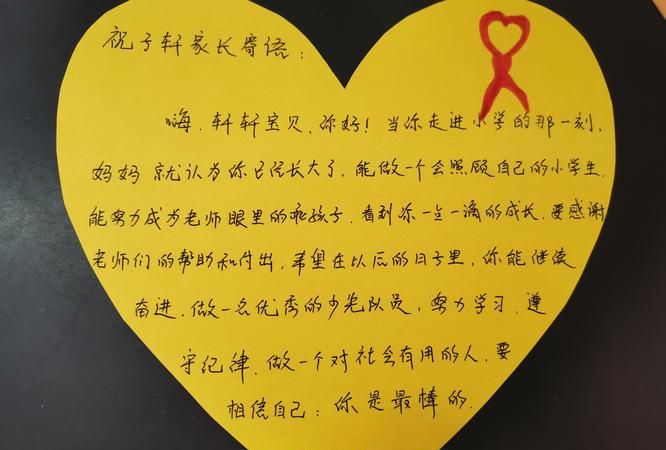 祝子轩家长寄语:
嗨、轩轩宝贝、你好!当你走进小学的那一刻、
妈妈就认为你已经长大了,能做一个会照顾自己的小学生.
能努力成为老师眼里的乖孩子.看到你一点一滴的成长.要感谢
老师们的帮助和付出.希望在以后的日子里,你能继续
奋进.做一名优秀的少先队员,努力学习.遵
守纪律.做一个对社会有用的人.要
相信自己:你是最棒的.